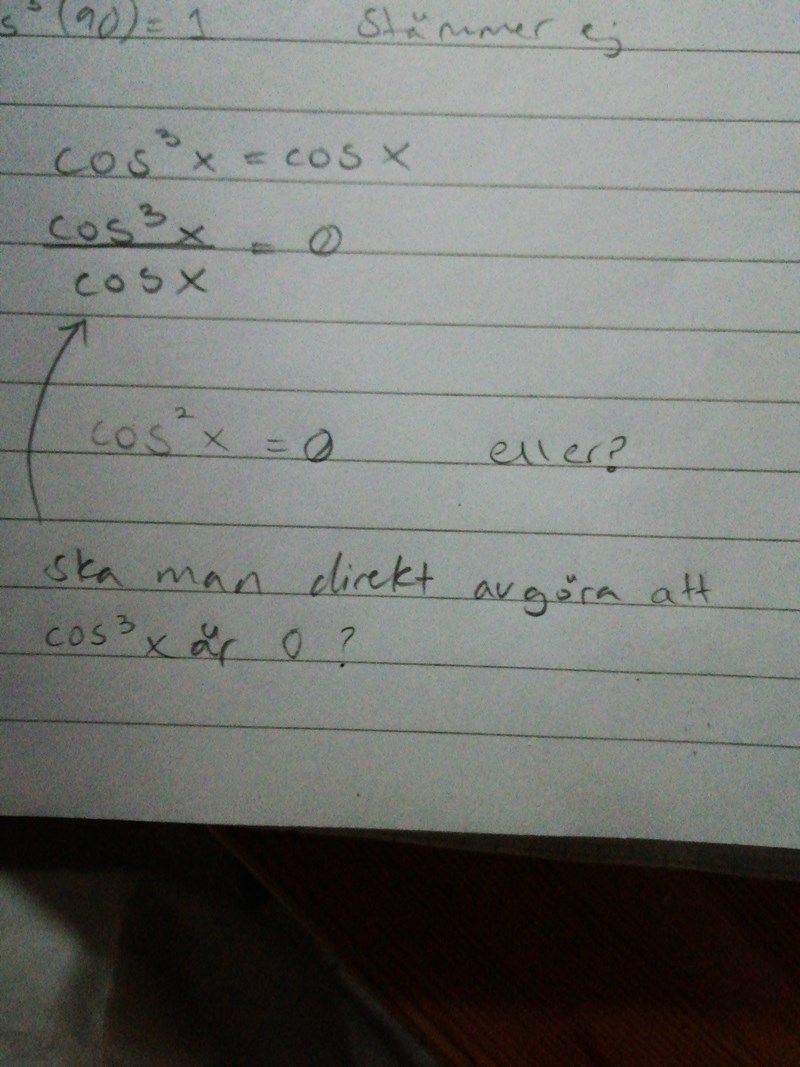 s³(90) = 1 Stämmer ej
cos³x = cos x
cos³x
cos x
= 0
cos²x = 0 eller?
ska man direkt avgöra att
cos³x är 0 ?